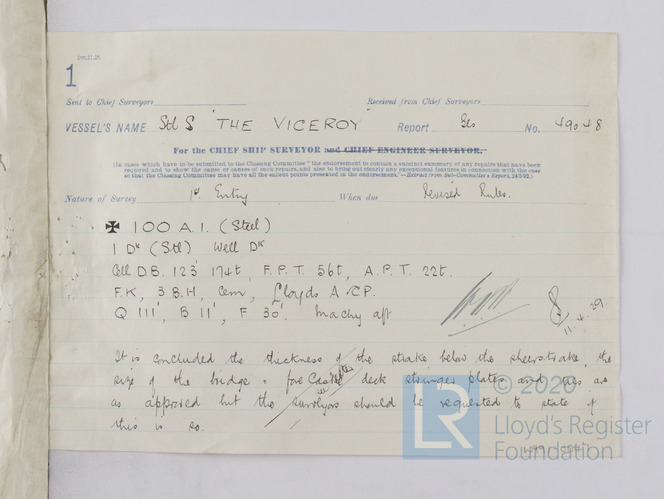 1
Sent to Chief Surveyors
Received from Chief Surveyors
VESSEL'S NAME Stl S 'THE VICEROY' Report Gls No. 49048
For the CHIEF SHIP SURVEYOR and CHIEF ENGINEER SURVEYOR.
(In cases which have to be submitted to the Classing Committee "the endorsement to contain a succinct summary of any repairs that have been
required and to show the cause or causes of such repairs, and also to bring out clearly any exceptional features in connection with the case
so that the Classing Committee may have all the salient points presented in the endorsement."—Extract from Sub-Committee's Report, 24/5/92.)
Nature of Survey 1st Entry When due Revised Rules.
✠ 100 A.1. (Steel)
1 Dk (Stl) Well Dk
Cell D.B. 123' 174t, F.P.T. 56t, A.P.T. 22t.
F.K, 3 B.H, Cem, Lloyds A & CP.
Q 111', B 11', F 30'. Machy aft
11.4.29.
It is concluded the thickness of the strake below the sheerstrake, the
size of the bridge & fore deck stringer plates and ties are
as approved but the surveyors should be requested to state if
this is so.
© 2020
LR
Lloyd's Register
Foundation